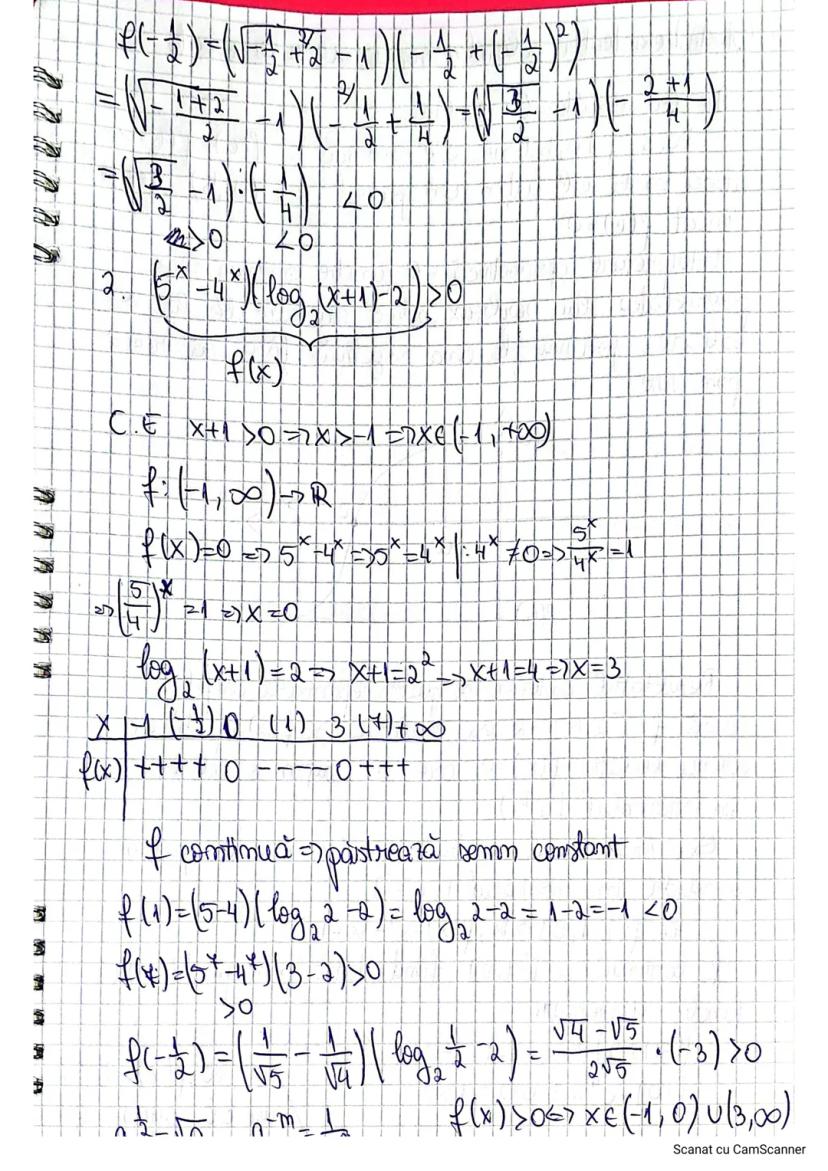 f(-1/2)=(√(-1/2+ ²⁾2) -1)(-1/2 + (-1/2)²)
=(√(-(1+2)/2) -1)(-²⁾1/2+1/4)=(√(3/2) -1)(-(2+1)/4)
=(√(3/2) -1)·(-1/4) <0
>0 <0
2. (5^x -4^x)(log₂(x+1)-2)>0
f(x)
C.E x+1>0=>x>-1=>x∈(-1,+∞)
f:(-1,∞)->ℝ
f(x)=0 => 5^x-4^x=>5^x=4^x |:4^x≠0=>5^x/4^x=1
=>(5/4)^x=1=>x=0
log₂(x+1)=2=> x+1=2²=>x+1=4=>x=3
x | -1 (-1/2) 0 (1) 3 (7)+∞
f(x) | ++++ 0 ----- 0 +++
f continuă=>păstrează semn constant
f(1)=(5-4)(log₂2-2)=log₂2-2=1-2=-1 <0
f(7)=(5⁷-4⁷)(3-2)>0
>0
f(-1/2)=(1/√5 - 1/√4)(log₂ 1/2 -2)= (√4-√5)/(2√5) ·(-3)>0
f(x)>0<=> x∈(-1,0)∪(3,∞)
Scanat cu CamScanner